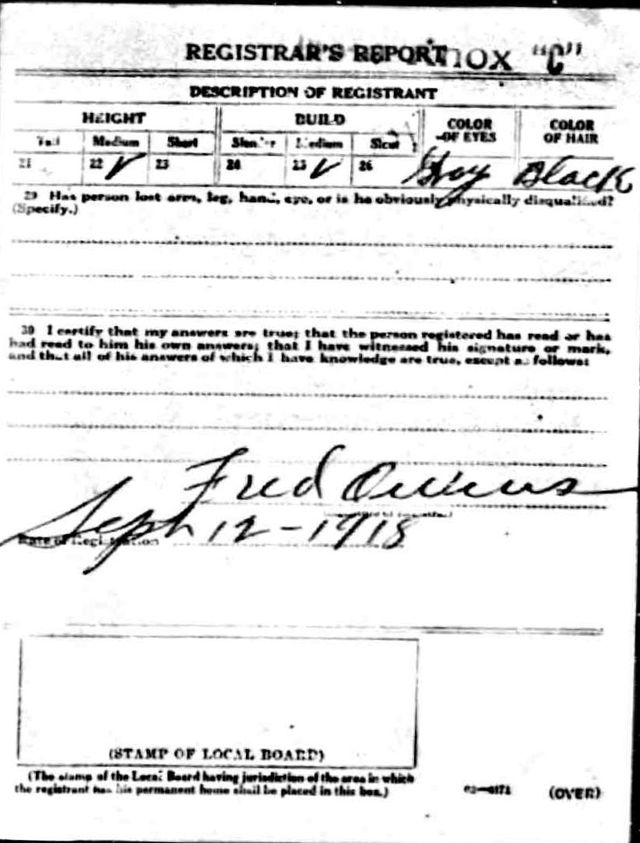 REGISTRAR'S REPORT
"C"
DESCRIPTION OF REGISTRANT
HEIGHT BUILD COLOR OF EYES COLOR OF HAIR
Tall Medium Short Slender Medium Stout
21 22 ✓ 23 24 25 ✓ 26 Gray Black
29 Has person lost arm, leg, hand, eye, or is he obviously physically disqualified?
(Specify.)
30 I certify that my answers are true; that the person registered has read or has
had read to him his own answers; that I have witnessed his signature or mark,
and that all of his answers of which I have knowledge are true, except as follows:
Fred Owens
Sept 12-1918
Date of Registration
(STAMP OF LOCAL BOARD)
(The stamp of the Local Board having jurisdiction of the area in which
the registrant has his permanent home shall be placed in this box.)
(OVER)